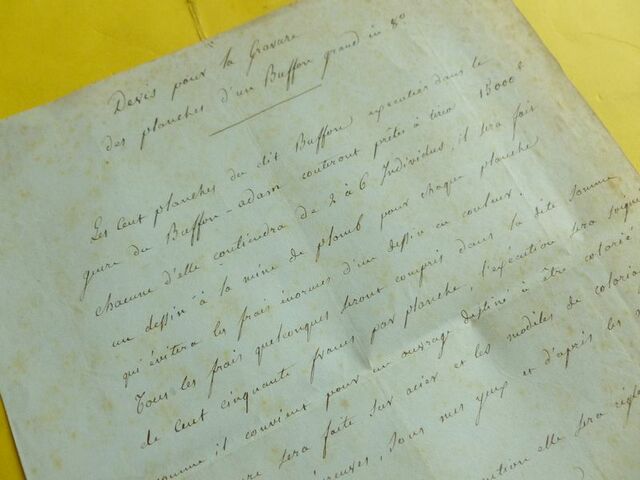 Devis pour la Gravure
des planches d'un Buffon grand in 8°
Les Cent planches du dit Buffon exécutées dans le
genre du Buffon-adam couteront prêtes à tirer 15000 f
chacune d'elle contiendra de 2 à 6 Individus, il sera fait
un dessin à la mine de plomb pour chaque planche
qui évitera les frais énormes d'un dessin en couleur.
Tous les frais quelconques seront compris dans la dite somme
de Cent cinquante francs par planche, l'exécution sera soigné
comme il convient pour un ouvrage destiné à être colorié
sera faite sur acier et les modèles de coloria
sous mes yeux et d'après les
elle sera régl